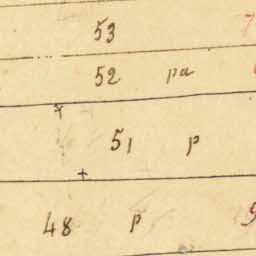 53 7
52 pa
51 p
48 p 9